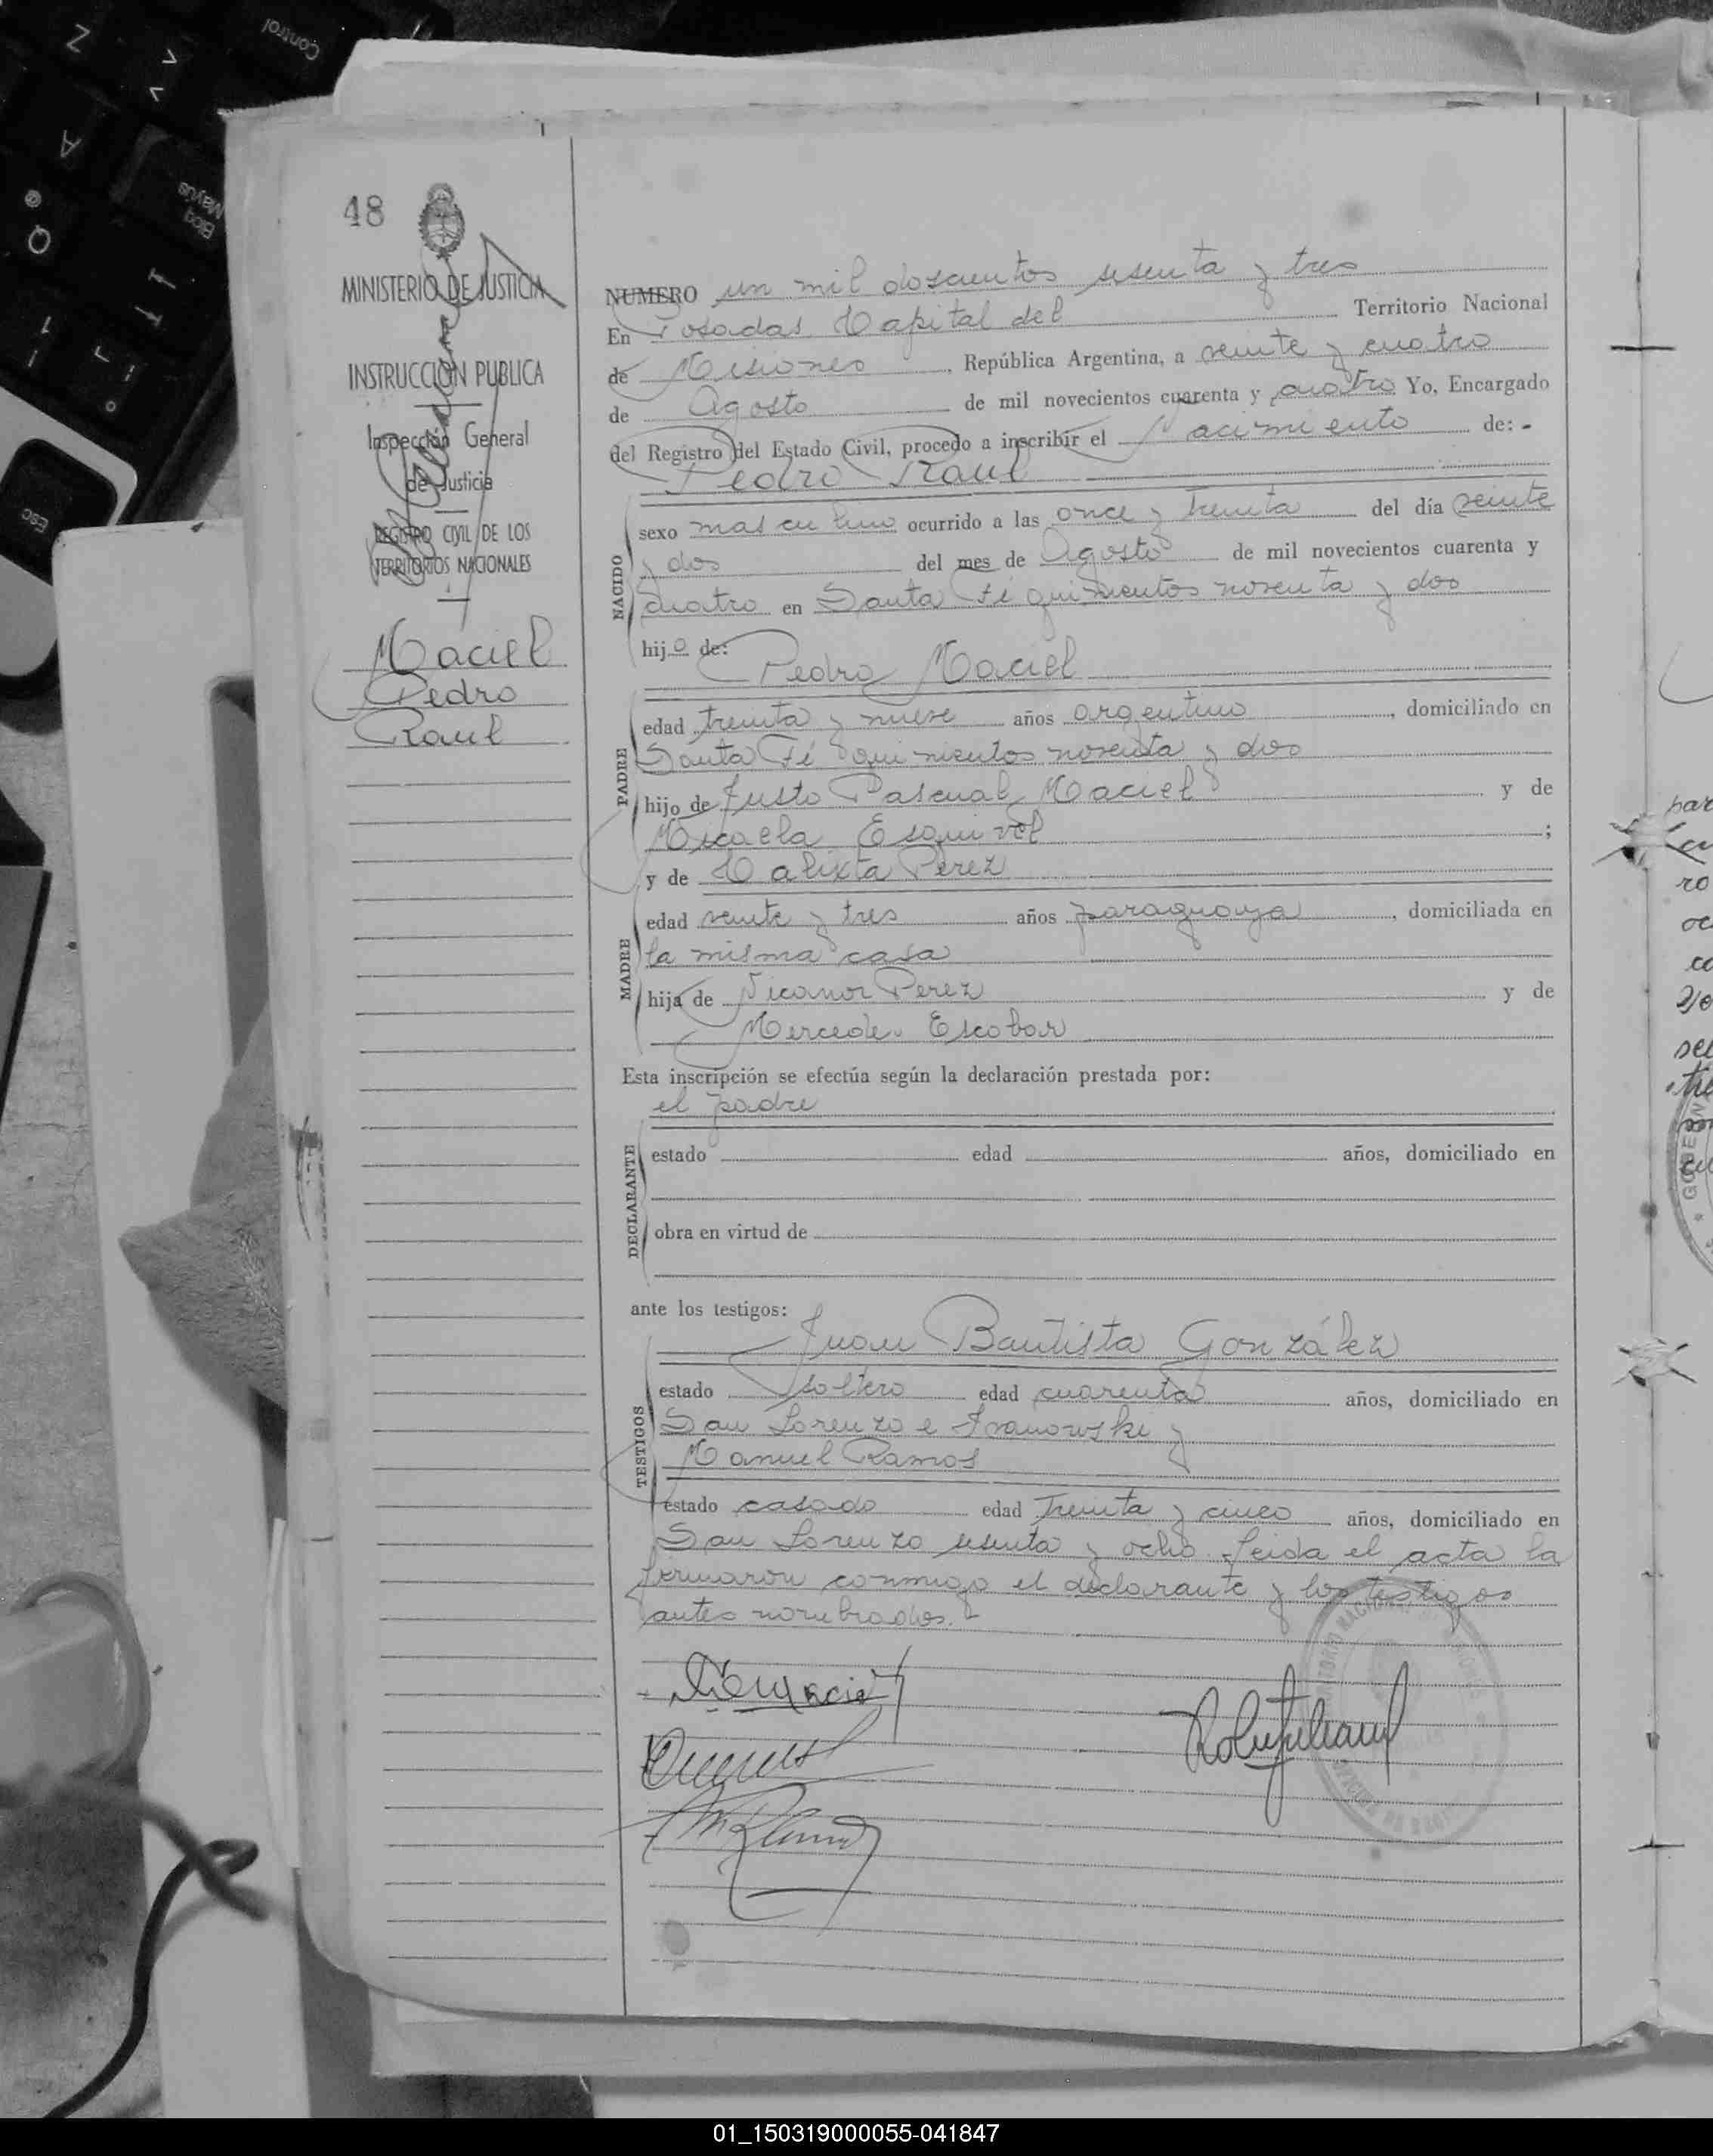 48
MINISTERIO DE JUSTICIA
INSTRUCCION PUBLICA
Inspección General
de Justicia
REGISTRO CIVIL DE LOS
TERRITORIOS NACIONALES
Maciel
Pedro
Raul
NUMERO un mil doscientos sesenta y tres
En Posadas Capital del Territorio Nacional
de Misiones, República Argentina, a veinte y cuatro
de Agosto de mil novecientos cuarenta y cuatro Yo, Encargado
del Registro del Estado Civil, procedo a inscribir el Nacimiento de:-
Pedro Raul
NACIDO
sexo masculino ocurrido a las once y treinta del día veinte
y dos del mes de Agosto de mil novecientos cuarenta y
cuatro en Santa Fé quinientos noventa y dos
hijo de:
Pedro Maciel
PADRE
edad treinta y nueve años argentino, domiciliado en
Santa Fé quinientos noventa y dos
hijo de Justo Pascual Maciel y de
Micaela Esquivel;
y de Calixta Perez
MADRE
edad veinte y tres años paraguaya, domiciliada en
la misma casa
hija de Nicanor Perez y de
Mercedes Escobar
Esta inscripción se efectúa según la declaración prestada por:
el padre
DECLARANTE
estado edad años, domiciliado en
obra en virtud de
ante los testigos:
Juan Bautista González
TESTIGOS
estado soltero edad cuarenta años, domiciliado en
San Lorenzo e Ivanowski y
Manuel Ramos
estado casado edad treinta y cinco años, domiciliado en
San Lorenzo sesenta y ocho. Leida el acta la
firmaron conmigo el declarante y los testigos
antes nombrados.-
Control
Bloq
Mayús
Esc
Z
A
Q
01_150319000055-041847